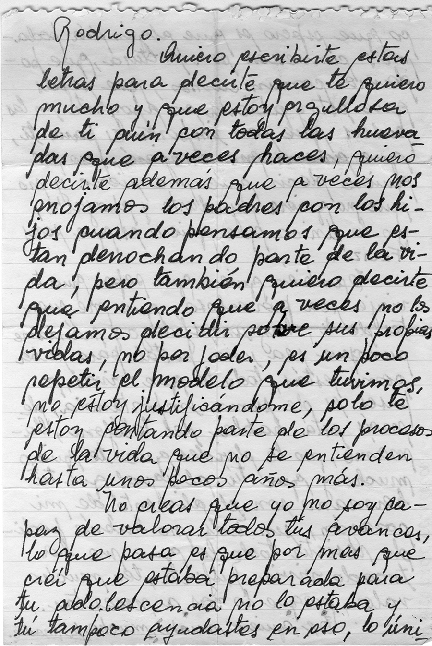 Rodrigo.
Quiero escribirte estas
letras para decirte que te quiero
mucho y que estoy orgullosa
de ti aún con todas las hueva
das que a veces haces, quiero
decirte además que a veces nos
enojamos los padres con los hi-
jos cuando pensamos que es-
tan derrochando parte de la vi-
da, pero también quiero decirte
que entiendo que a veces no los
dejamos decidir sobre sus propias
vidas, no por joder, es un poco
repetir el modelo que tuvimos,
no estoy justificándome, solo te
estoy contando parte de los procesos
de la vida que no se entienden
hasta unos pocos años más.
No creas que yo no soy ca-
paz de valorar todos tus avances,
lo que pasa es que por mas que
creí que estaba preparada para
tu adolescencia no lo estaba y
tú tampoco ayudastes en eso, lo úni-